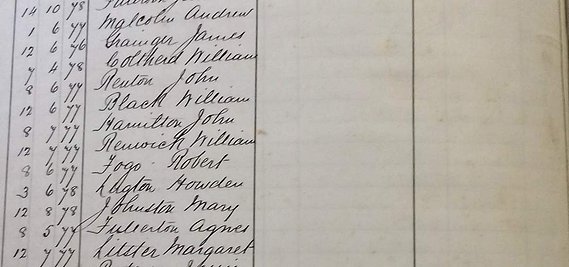 14 10 78
1 6 77 Malcolm Andrew
12 6 76 Grainger James
7 4 78 Coltherd William
8 6 77 Renton John
12 6 77 Black William
8 7 77 Hamilton John
12 7 77 Renwick William
8 6 77 Fogo Robert
3 6 78 Lugton Howden
12 8 78 Johnston Mary
8 5 77 Fullerton Agnes
12 7 77 Litster Margaret